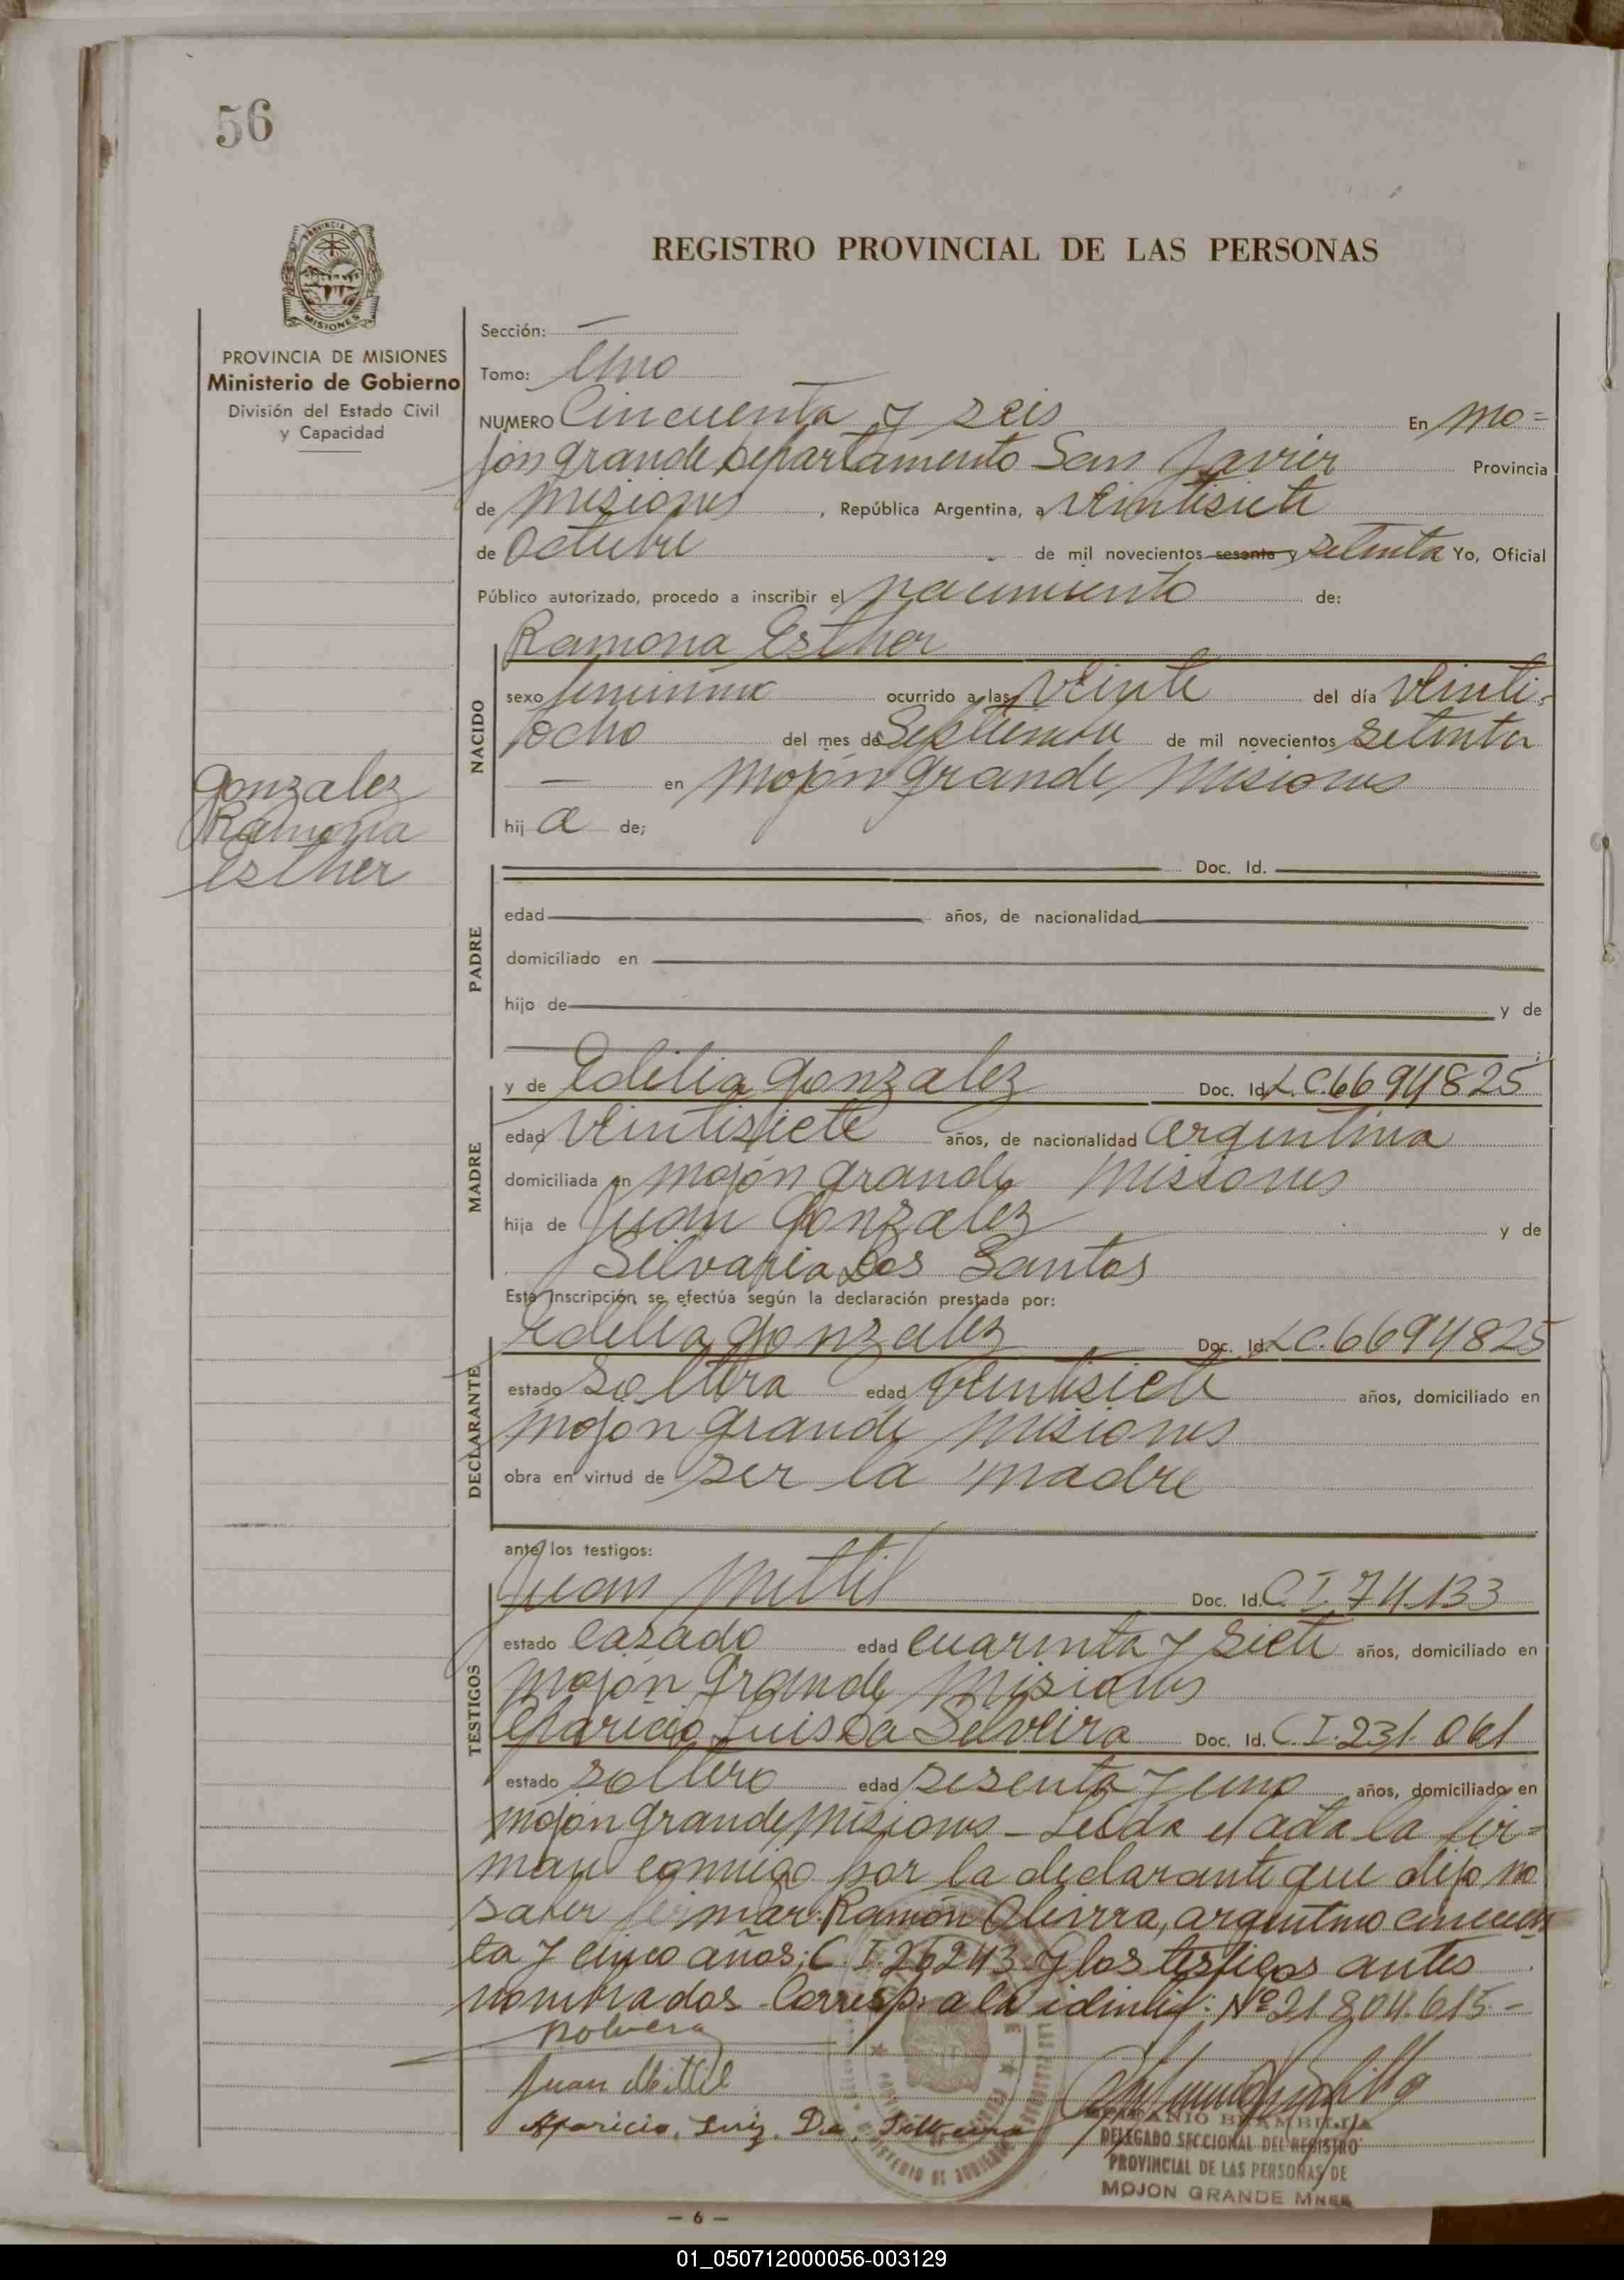 56
REGISTRO PROVINCIAL DE LAS PERSONAS
PROVINCIA DE
MISIONES
PROVINCIA DE MISIONES
Ministerio de Gobierno
División del Estado Civil
y Capacidad
Gonzalez
Ramona
Esther
Sección: —
Tomo: Uno
NUMERO Cincuenta y seis En Mo=
jón grande Departamento San Javier Provincia
de Misiones, República Argentina, a veintisiete
de Octubre de mil novecientos sesenta y setenta Yo, Oficial
Público autorizado, procedo a inscribir el nacimiento de:
NACIDO
Ramona Esther
sexo femenino ocurrido a las veinte del día veinti=
ocho del mes de Septiembre de mil novecientos setenta
— en Mojón grande, Misiones
hij a de;
PADRE
Doc. Id.
edad años, de nacionalidad
domiciliado en
hijo de y de
MADRE
y de Edilia Gonzalez Doc. Id. L.C. 6694825
edad veintisiete años, de nacionalidad argentina
domiciliada en Mojón grande Misiones
hija de Juan Gonzalez y de
Dos Santos
Esta inscripción se efectúa según la declaración prestada por:
DECLARANTE
Edilia Gonzalez Doc. Id. L.C. 6694825
estado soltera edad veintisiete años, domiciliado en
Mojón grande Misiones
obra en virtud de ser la madre
ante los testigos:
TESTIGOS
Juan Mittil Doc. Id. C.I. 74.133
estado casado edad cuarenta y siete años, domiciliado en
Mojón grande Misiones
Aparicio Luis Da Silveira Doc. Id. C.I. 231.061
estado soltero edad sesenta y uno años, domiciliado en
Mojón grande Misiones - Leída el acta la fir=
man conmigo por la declarante que dijo no
saber firmar: Ramón Oliveira, argentino cincuen
ta y cinco años; C.I. 26243 y los testigos antes
nombrados. Corresp: a la identif: Nº 21.804.615.-
Juan Mittil
Aparicio, Luiz, Da,
BRAMBILLA
DELEGADO SECCIONAL DEL REGISTRO
PROVINCIAL DE LAS PERSONAS DE
MOJON GRANDE MNES
— 6 —
01_050712000056-003129